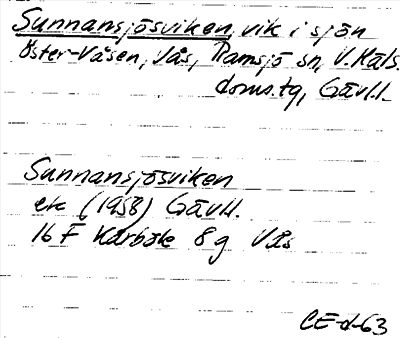 Sunnansjösviken, vik i sjön
Öster-Våsen, Vås, Ramsjö sn, V. Häls.
doms.tg, Gävl.l.
Sunnansjösviken
ek (1958) Gävl.l.
16 F Kårböle 8 g Vås
CE-d-63